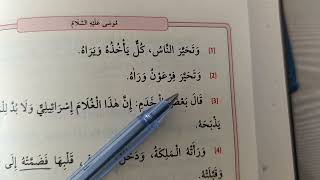 مُوسَى عَلَيْهِ السَّلَامُ
[1] وَتَحَيَّرَ النَّاسُ، كُلٌّ يَأْخُذُهُ وَيَرَاهُ.
[2] وَتَحَيَّرَ فِرْعَوْنُ وَرَآهُ.
[3] قَالَ بَعْضُ الْخَدَمِ: إِنَّ هَذَا الْغُلَامَ إِسْرَائِيلِيٌّ وَلَا بُدَّ
يَذْبَحَهُ.
[4] وَرَأَتْهُ الْمَلِكَةُ، وَدَخَلَ قَلْبِهَا فَضَمَّتْهُ إِلَى
وَقَبَّلَتْهُ.